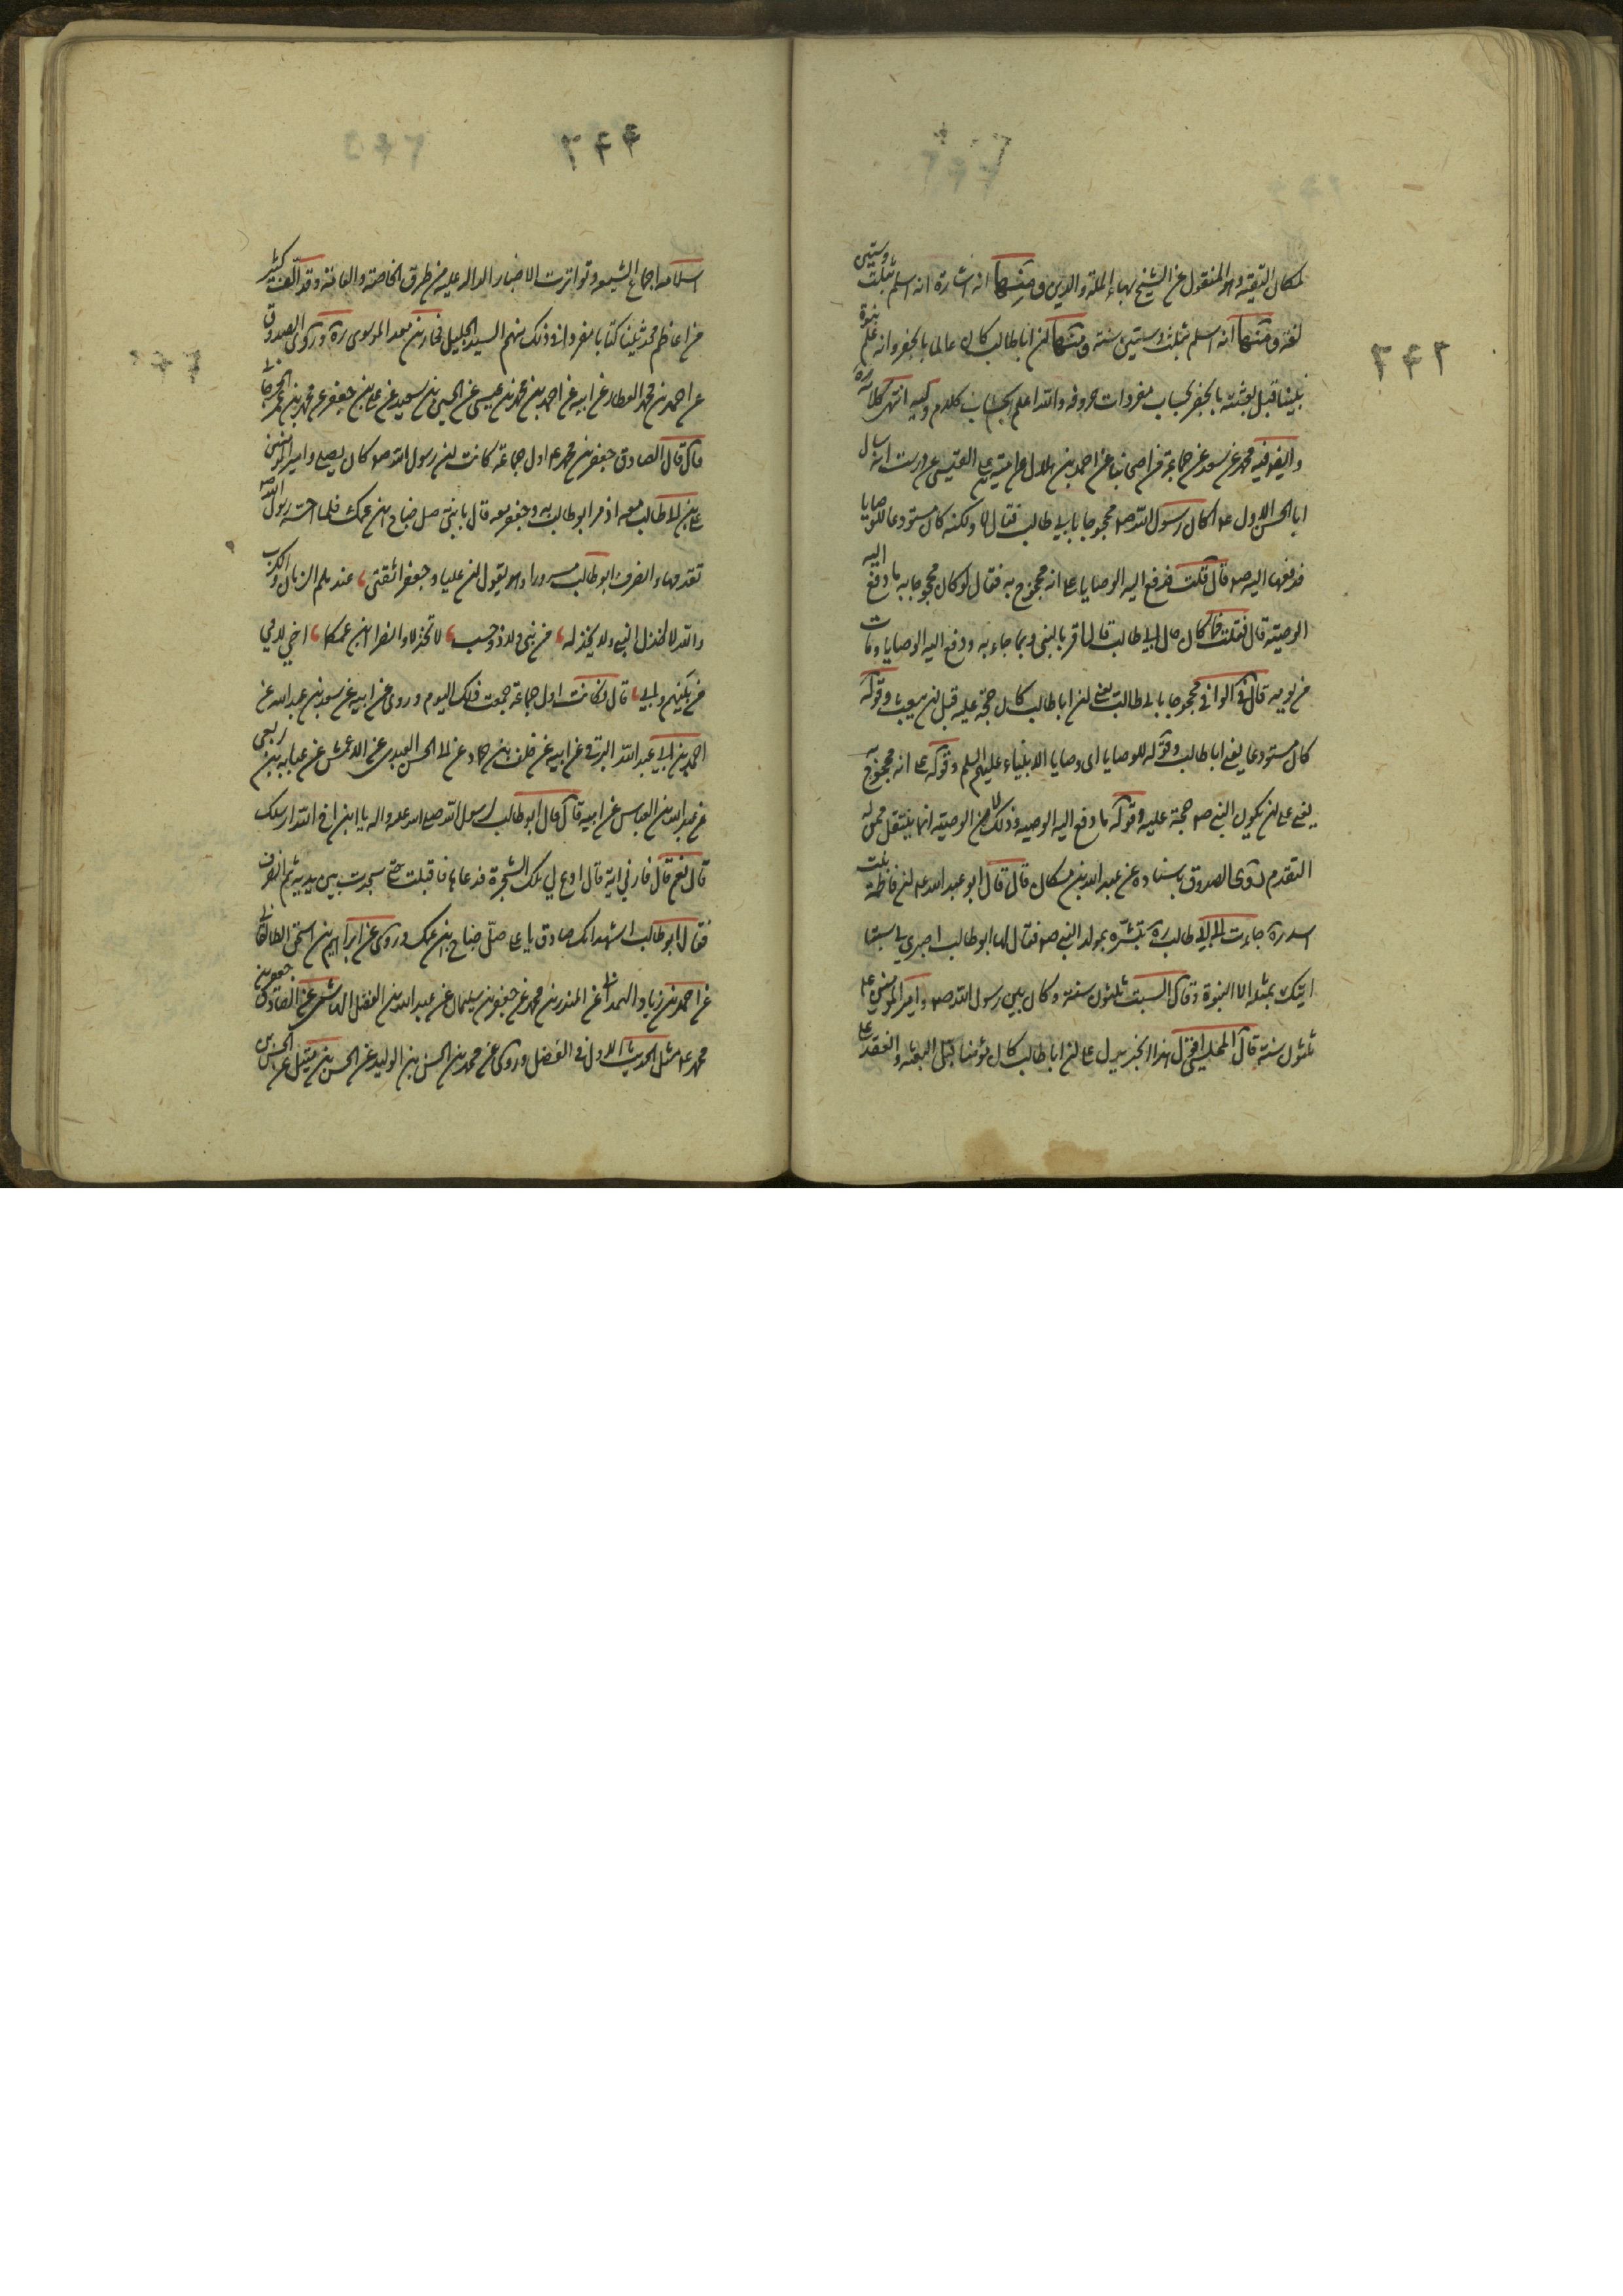 لمكان التقية وهو المنقول عن الشيخ بهاء الملة والدين ومنها انه اشارة انه اسلم بثلث وستين
لغة ومنها انه اسلم بثلث وستين سنة ومنها ان اباطالب كان عالما بالجفر وانه علم نبوة
نبينا قبل بعثته بالجفر بحساب مفردات حروفه والله اعلم بحساب كلام وليه انتهى كلامه ره
وايضا فيه محمد عن سعد عن جماعة من اصحابنا عن احمد بن هلال عن امية بن علي القيسي عن درست انه سال
ابا الحسن الاول ع اكان رسول الله ص محجوجا بابي طالب فقال لا ولكنه كان مستودعا للوصايا
فدفعها اليه ص قال قلت فدفع اليه الوصايا على انه محجوج به فقال لو كان محجوجا به ما دفع اليه
الوصية قال فقلت فما كان حال ابي طالب قال اقر بالنبي وبما جاء به ودفع اليه الوصايا ومات
من يومه قال في الوافي محجوجا بابي طالب يعني ان اباطالب كان حجة عليه قبل ان يبعث وقوله
كان مستودعا يعني اباطالب وقوله للوصايا اى وصايا الانبياء عليهم السلم وقوله على انه محجوج به
يعني على ان يكون النبي ص حجة عليه وقوله ما دفع اليه الوصية وذلك لان الوصية انما ينتقل ممن له
التقدم روى الصدوق باسناده عن عبد الله بن مسكان قال قال ابو عبد الله ع ان فاطمة بنت
اسد ره جاءت الى ابي طالب ره تبشره بمولد النبي ص فقال لها ابوطالب اصبري لي سبتا
اتيك بمثله الا النبوة وقال السبت ثلثون سنة وكان بين رسول الله ص وامير المؤمنين ع
ثلثون سنة قال المجلسي هذا الخبر يدل على ان اباطالب كان مؤمنا قبل البعثة وانعقد على
٢٤٤
اسلامه اجماع الشيعه وتواترت الاخبار الداله عليه من طرق الخاصة والعامة وقد الف كثير
من اعاظم محدثينا كتابا مفردا في ذلك منهم السيد الجليل فخار بن معد الموسوى ره وروى الصدوق
عن احمد بن محمد العطار عن ابيه عن احمد بن محمد بن عيسى عن الحسين بن سعيد عن علي بن جعفر عن محمد بن عمر الجرجاني
قال قال الصادق جعفر بن محمد ع اول جماعة كانت ان رسول الله ص كان يصلي وامير المؤمنين
علي بن ابي طالب معه اذ مر ابوطالب به وجعفر معه قال يا بني صل جناح ابن عمك فلما احسه رسول الله ص
تقدمهما وانصرف ابوطالب مسرورا وهو يقول ان عليا وجعفرا ثقتي ، عند ملم الزمان والكرب
والله لا اخذل النبي ولا يخذله ، من بني ذو حسب ، لا تخذلا وانصرا ابن عمكما ، اخي لامي
من بينهم وابي ، قال فكانت اول جماعة جمعت ذلك اليوم وروى عن ابيه عن سعد بن عبد الله عن
احمد بن ابي عبد الله البرقي عن ابيه عن خلف بن حماد عن ابي الحسن العبدى عن الاعمش عن عباية بن ربعي
عن عبد الله بن العباس عن ابيه قال قال ابوطالب لرسول الله صلى الله عليه واله يا ابن اخي الله ارسلك
قال نعم قال فارني اية قال ادع لي تلك الشجرة فدعاها فاقبلت حتى سجدت بين يديه ثم انصرفت
فقال ابوطالب اشهد انك صادق يا علي صل جناح ابن عمك وروى عن ابراهيم بن اسحق الطالقاني
عن احمد بن زياد الهمداني عن المنذر بن محمد عن جعفر بن سليمان عن عبد الله بن الفضل الهاشمي عن الصادق جعفر بن
محمد ع مثل الحديث الاول في الفضل وروى عن محمد بن الحسن بن الوليد عن الحسن بن متيل عن الحسن بن